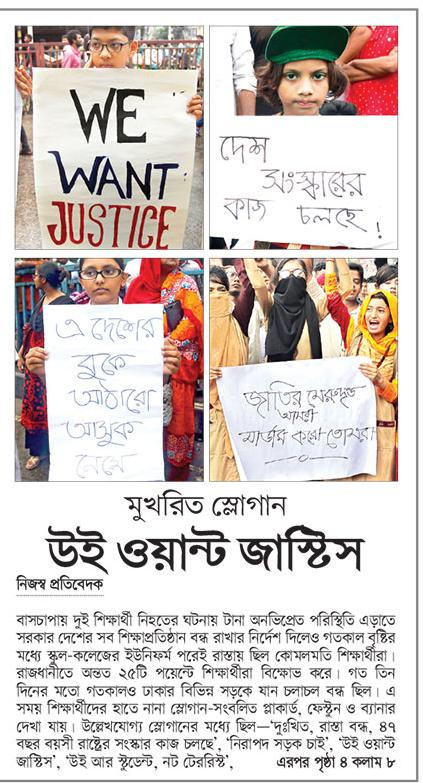 WE
WANT
JUSTICE
দেশ
সংস্কারের
কাজ চলছে!
এ দেশের
বুকে
আঠারো
আসুক
নেমে
জাতির মেরুদন্ড
আমরা
মার্ডার করো তোমরা
মুখরিত স্লোগান
উই ওয়ান্ট জাস্টিস
নিজস্ব প্রতিবেদক
বাসচাপায় দুই শিক্ষার্থী নিহতের ঘটনায় টানা অনভিপ্রেত পরিস্থিতি এড়াতে
সরকার দেশের সব শিক্ষাপ্রতিষ্ঠান বন্ধ রাখার নির্দেশ দিলেও গতকাল বৃষ্টির
মধ্যে স্কুল-কলেজের ইউনিফর্ম পরেই রাস্তায় ছিল কোমলমতি শিক্ষার্থীরা।
রাজধানীতে অন্তত ২৫টি পয়েন্টে শিক্ষার্থীরা বিক্ষোভ করে। গত তিন
দিনের মতো গতকালও ঢাকার বিভিন্ন সড়কে যান চলাচল বন্ধ ছিল। এ
সময় শিক্ষার্থীদের হাতে নানা স্লোগান-সংবলিত প্লাকার্ড, ফেস্টুন ও ব্যানার
দেখা যায়। উল্লেখযোগ্য স্লোগানের মধ্যে ছিল—‘দুঃখিত, রাস্তা বন্ধ, ৪৭
বছর বয়সী রাষ্ট্রের সংস্কার কাজ চলছে’, ‘নিরাপদ সড়ক চাই’, ‘উই ওয়ান্ট
জাস্টিস’, ‘উই আর স্টুডেন্ট, নট টেররিস্ট’, এরপর পৃষ্ঠা ৪ কলাম ৮